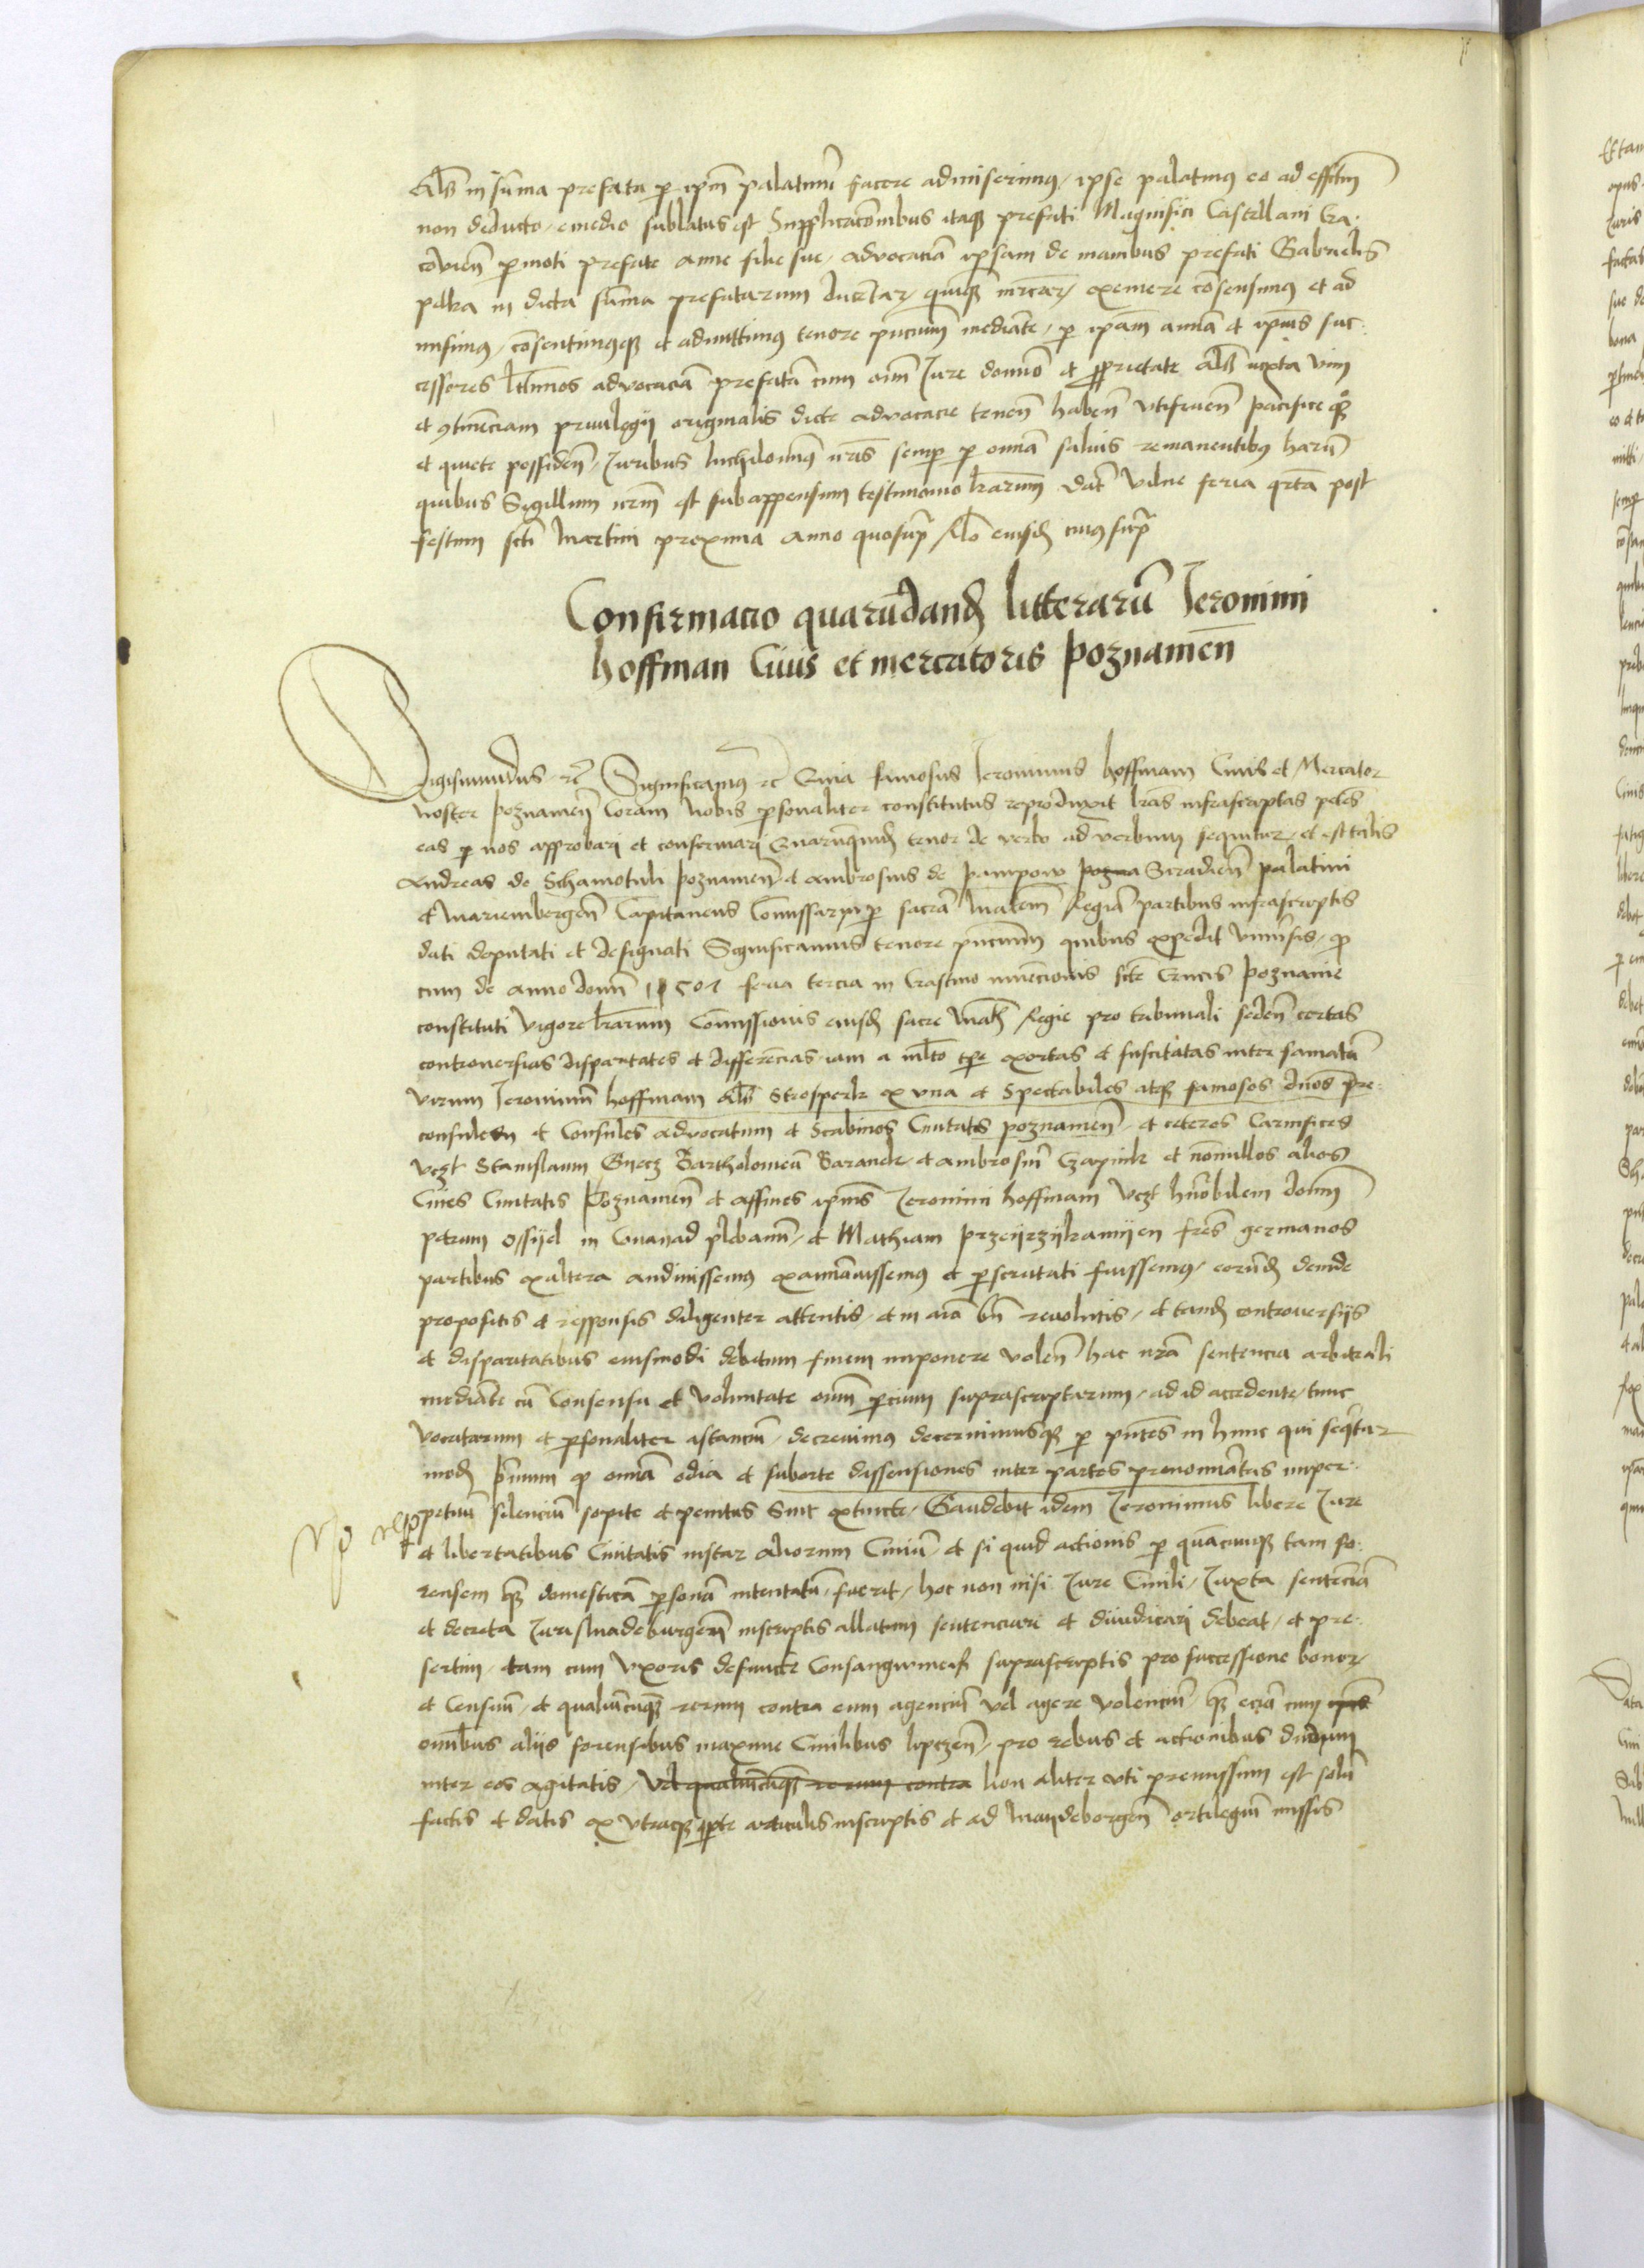 in sūma prefata p ipm̄ palatinū facere admiserimus, ipse palatinus eo ad effectū
non deducto, emedio sublatus est Supplicacōnibus itaq; prefati Magnifici Castellani Cra-
covien̄ p moti prefate Anne filie sue, advocaciā ipsam de manibus prefati Gabrielis
in dicta sūma prefatarum ducentar quinq; mrcar, exemere cōsensimus et ad
misimus, cōsentimusq; et admittimus tenore pñcium mediāte, p ipam annā et ipius suc-
cessores ltimos advocaciā prefatā cum om̄i Jure domīo et proprietate als iuxta vim
et cōtinēciam privilegij originalis dicte advocacie tenen̄ haben̄ utifruen̄ pacifice q;
et quiete possiden̄, Juribus nris semp p omnia salvis remanentibus harū
quibus Sigillum nrm̄ est subappensum testimonio lrarum̄ Dat Vilne feria qrta post
festum scti Martini proxima anno quosup̄ eiusd cuius sup̄
Confirmacio quarūdand litterarū Jeronimi
hoffman Civis et mercatoris poznamen̄
Sigismundus rc Significamus rc Quia famosus Jeronimus hoffman Civis et Mercator
noster poznamen̄ Coram Nobis psonaliter constitutus reproduxit lras infrascriptas petēs
eas p nos approbari et confirmari Quarūquid tenor de verbo ad verbum sequitur, et est talis
Andreas de Schamotuli poznamen̄ et Ambrosius de pampow pozna Siradien̄ palatini
et Mariembergen̄ Capitaneus Comissarij p sacrā Maiem̄ Regiā partibus infrascriptis
dati deputati et designati Significamus tenore pñcium̄ quibus expedit vniūsis, q
cum de anno domī 1501 feria tercia in Crastino invēcionis scte Crucis poznanie
constituti vigore lrarum Comissionis eiusd sacre Regie pro tribunali seden̄ certas
controversias disparitates et differēcias iam a mlto tpe exortas et suscitatas inter famatū
virum Jeronimū hoffman als Strosperk ex una et Spectabiles atq; famosos dnōs pre-
consulem et Consules advocatum et Scabinos Civitatis poznamen̄, et ceteros Carnifices
vczt Stanislaum Gyecz Bartholomeū Baranek et ambrosiū Czapnik et nōnullos alios
Cives Civitatis Poznamen̄ et affines ipius Jeronimi hoffman vczt hnōbilem domī
petrum Ossijel in plebanū, et Mathiam frēs germanos
partibus ex altera audivissemus examīavissemus et pscrutati fuissemus, eorūd deinde
propositis et responsis diligenter attentis, et in aīa bn̄ revolutis, et tand controversijs
et disparitatibus eiusmodi debitum finem imponere volen̄ hac nrā sentencia arbitrali
mediāte cū Consensu et voluntate om̄i pcium suprascriptarum, ad id accedente, tunc
vocatarum et psonaliter astanciū, decrevimus decernimusq; p pñtes in hunc qui seqtur
mod Primum q omīa odia et suborte dissensiones inter partes prenomiātas imper-
petuū silenciū sopite et penitus sint extincte, Gaudebit idem Jeronimus libere Jure
et libertatibus Civitatis instar aliorum Civiū, et si quid actionis p quācunq; tam fo-
rensem q; domesticā psonā intentatū fuerit, hoc non nisi Jure Civili, Juxta sentēciā
et decreta Juris Madeburgen̄ inscriptis allatum sentenciari et dijudicari debeat, et pre-
sertim, tam cum Uxoris defuncte Consanguineis suprascriptis pro successione bonor,
et Censuū, et qualiūcūq; rerum contra eum agenciū vel agere volenciū, q; eciā cum
om̄ibus alijs forensibus maxime Civilibus lipczen̄, pro rebus et actionibus dudum
inter eos agitatis, vel qualiūcūq; rerum contra Non aliter uti premissum est solū
factis et datis ex utraq; pte articulis inscriptis et ad Maydeborgen̄ ortilegiū missis